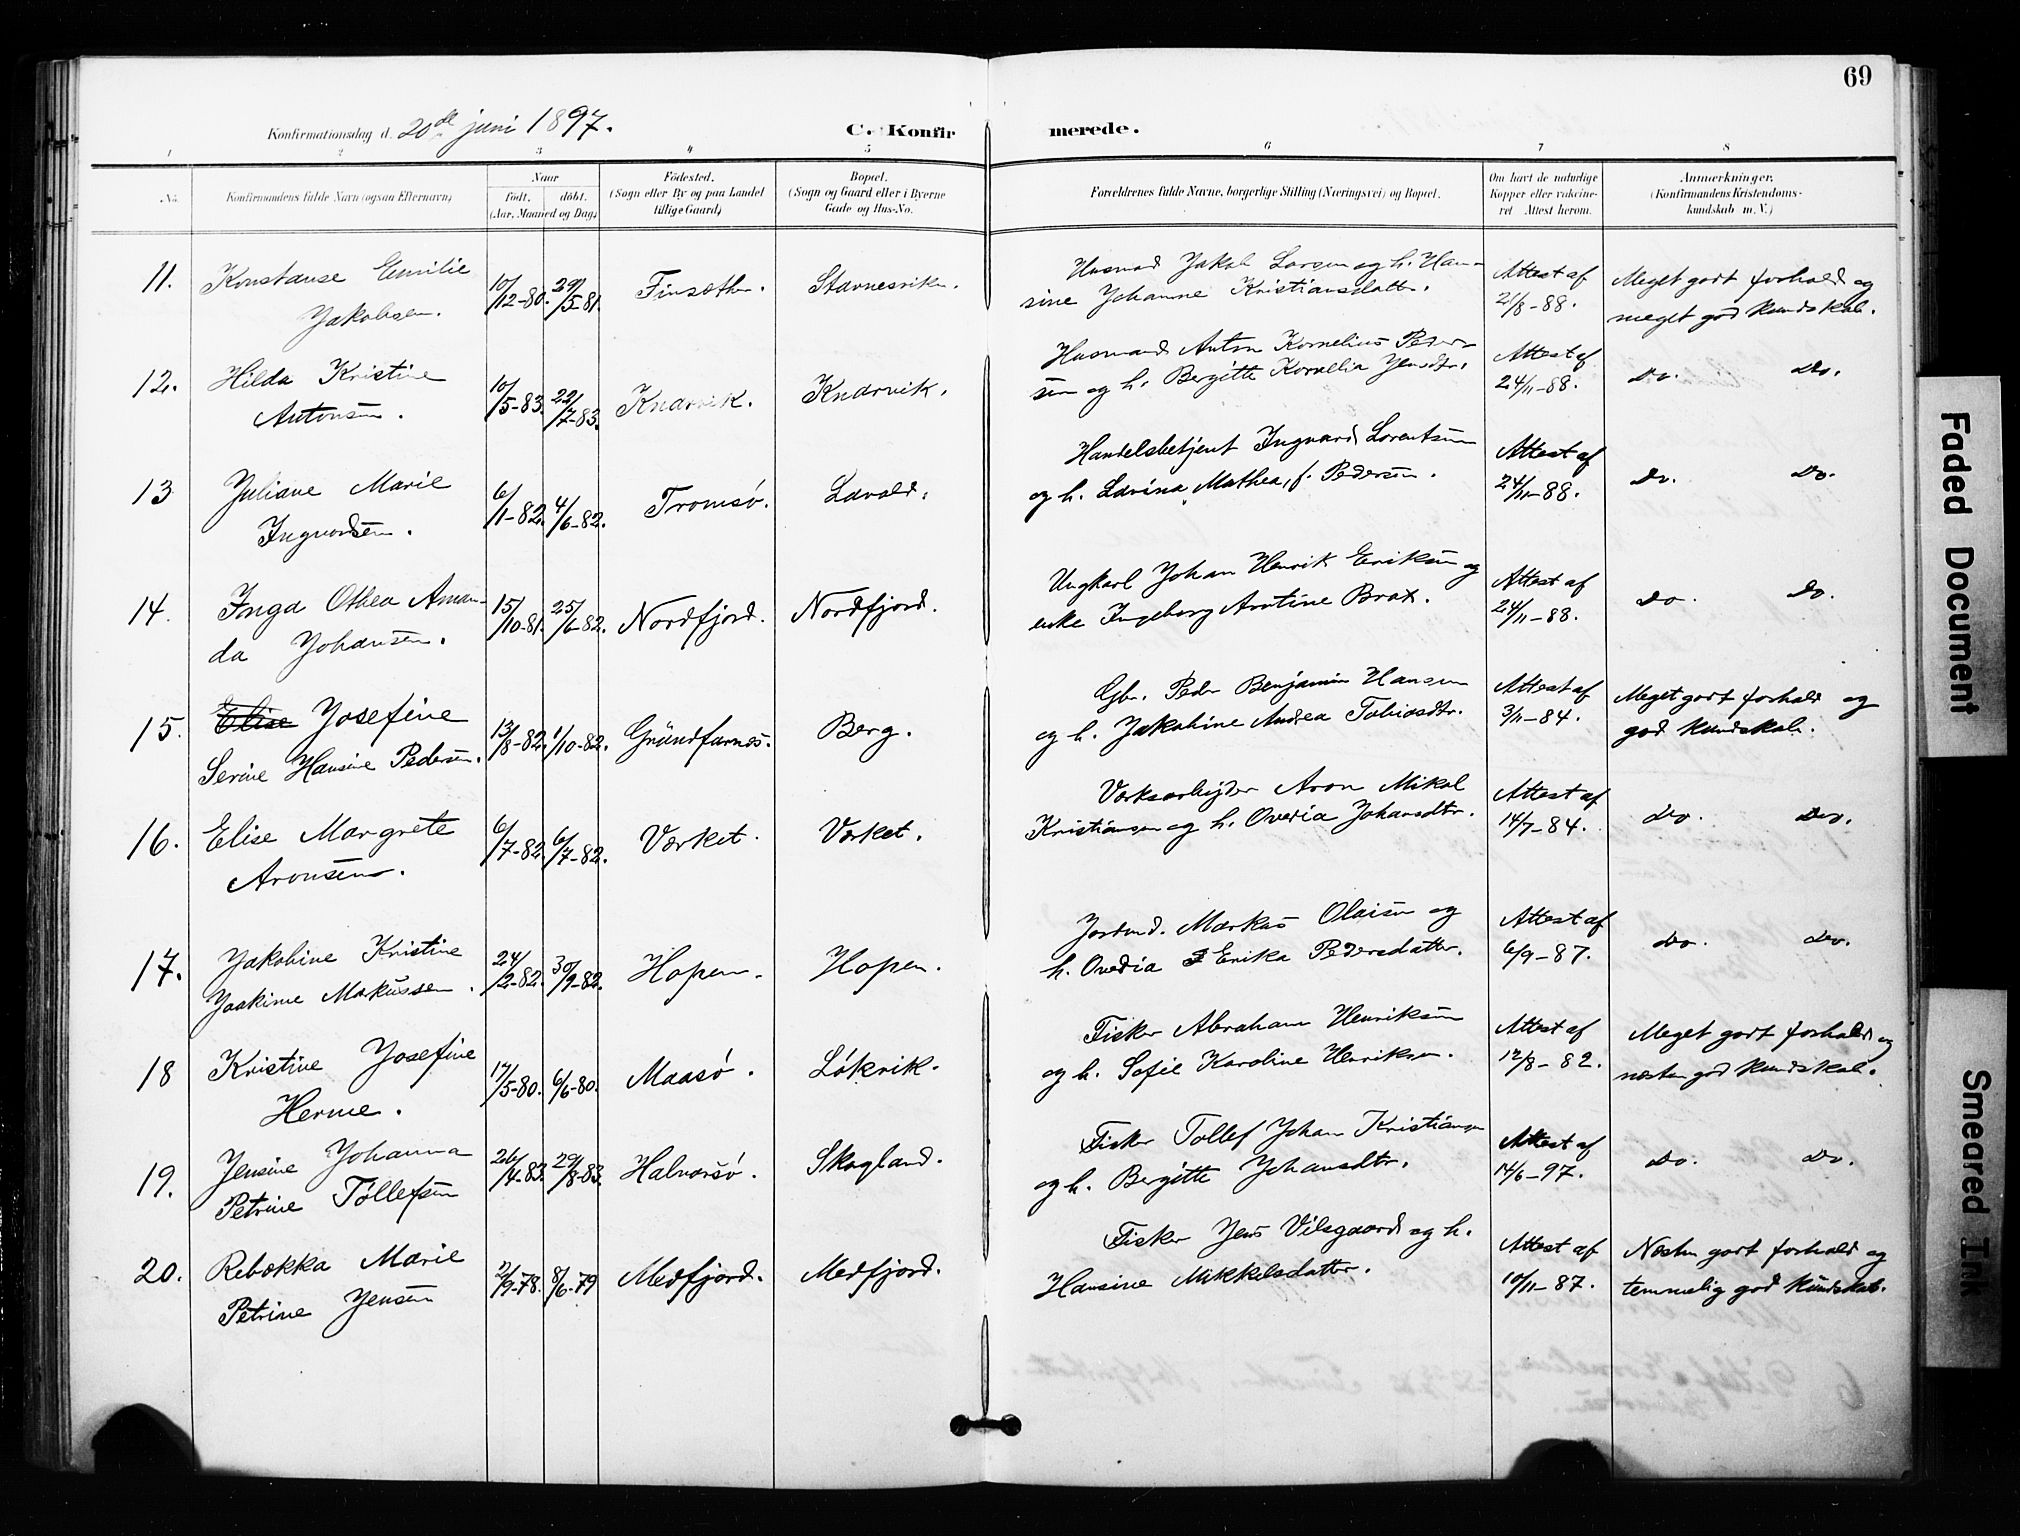 69
Konfirmationsdag d. 20de juni 1897.
C. Konfirmerede.
1 2 3 4 5 6 7 8
No.
Konfirmandens fulde Navn (ogsaa Efternavn)
Naar
født. døbt.
(Aar, Maaned og Dag)
Fødested.
(Sogn eller By og paa Landet
tillige Gaard)
Bopæl.
(Sogn og Gaard eller i Byerne
Gade og Hus-No.
Forældrenes fulde Navne, borgerlige Stilling (Næringsvei) og Bopæl.
Om havt de naturlige
Kopper eller vakcine-
ret Attest herom.
Anmerkninger,
(Konfirmandens Kristendoms-
kundskab m. V.)
11. Konstanse Emilie
Jakobsen.
10/12-80. 29/5-81. Finsæther. Stavnesvik.
Husmand Jakob Larsen og h. Han-
sine Johanne Kristiansdatter.
Attest af
21/8-88.
Meget godt forhold og
meget god kundskab.
12. Hilda Kristine
Antonsen.
10/5-83. 22/7-83. Knarvik. Knarvik.
Husmand Anton Kornelius Peder-
sen og h. Bergitte Kornelia Jensdtr.
Attest af
24/11-88.
Do. Do.
13 Juliane Marie
Ingvardsen.
6/11-82. 4/6-82. Tromsø. Lavold.
Handelsbetjent Ingvard Lorentsen
og h. Lavina Mathea, f. Pedersen.
Attest af
24/11-88.
Do. Do.
14. Inga Othea Aman-
da Johansen.
15/10-81. 25/6-82. Nordfjord. Nordfjord.
Ungkarl Johan Henrik Eriksen og
enke Ingeborg Arntine Brox.
Attest af
24/11-88.
Do. Do.
15. Elise Josefine
Serine Hansine Pedersen.
13/8-82. 1/10-82. Grundfarnes. Berg.
Gbr. Peder Benjamin Hansen
og h. Jakobine Andrea Tobiasdtr.
Attest af
3/11-84.
Meget godt forhold og
god kundskab.
16. Elise Margrete
Aronsen.
6/7-82. 6/7-82. Værket. Værket.
Værksarbejder Aron Mikal
Kristiansen og h. Ovedia Johansdtr.
Attest af
14/7-84.
Do. Do.
17. Jakobine Kristine
Joakime Markussen.
24/2-82. 30/9-82. Hopen. Hopen.
Jordmd. Markus Olaisen og
h. Ovedia Erika Pedersdatter.
Attest af
6/9-87.
Do. Do.
18 Kristine Josefine
Herme.
17/5-80. 6/6-80. Maasø. Løkvik.
Fisker Abraham Henriksen
og h. Sofie Karoline Henriksen.
Attest af
12/8-82.
Meget godt forhold og
næsten god kundskab.
19. Jensine Johanna
Petrine Tøllefsen
26/4-83. 29/8-83. Halvarsø. Skogland.
Fisker Tollef Johan Kristiansen
og h. Bergitte Johansdtr.
Attest af
14/6-97.
Do. Do.
20. Rebekka Marie
Petrine Jensen
2/9-78. 8/6-79 Medfjord. Medfjord.
Fisker Jens Vilsgaard og h.
Hansine Mikkelsdatter.
Attest af
10/11-87.
Næsten godt forhold og
temmelig god kundskab.
Faded Document
Smeared Ink